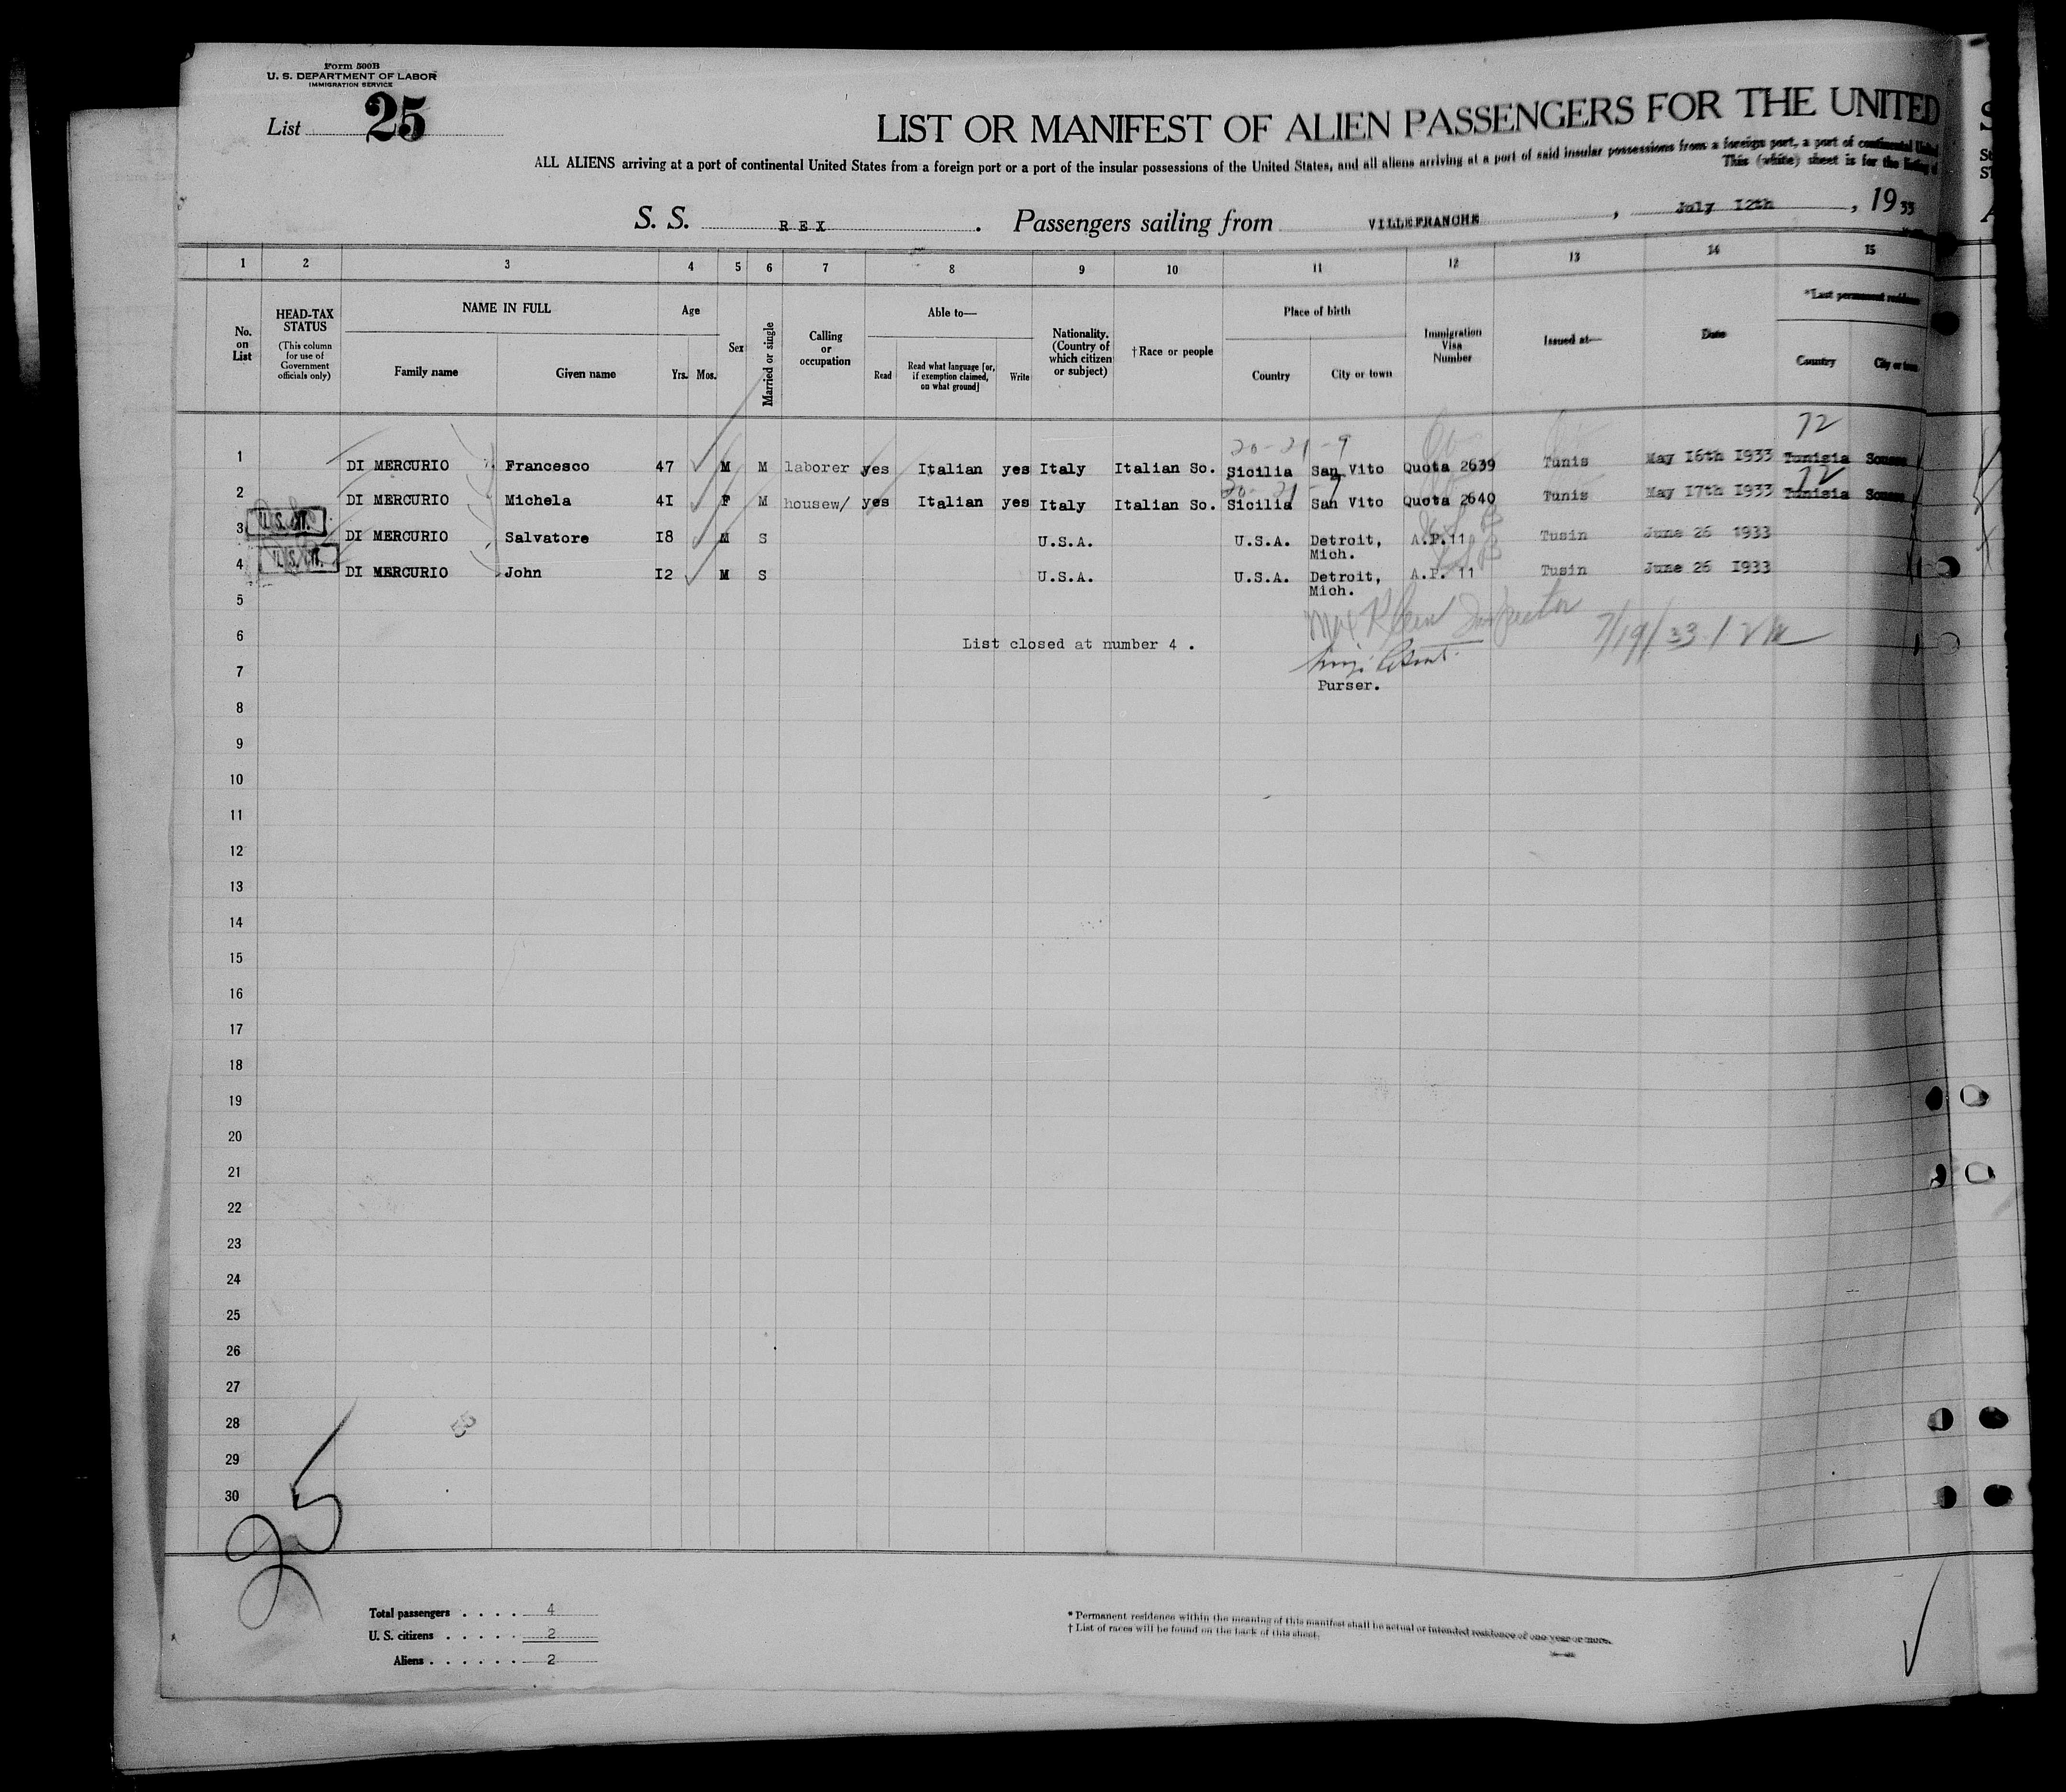 Form 500B
U. S. DEPARTMENT OF LABOR
IMMIGRATION SERVICE
List 25
LIST OR MANIFEST OF ALIEN PASSENGERS FOR THE UNITED
ALL ALIENS arriving at a port of continental United States from a foreign port or a part of the insular possessions of the United States, and all aliens arriving at a port of said insular possessions from a foreign port, a part of continental United
This (white) sheet is for the listing of
S. S. REX. Passengers sailing from VILLEFRANCHE, July 12th, 1933
1 2 3 4 5 6 7 8 9 10 11 12 13 14 15
No. on List
HEAD-TAX STATUS
(This column for use of Government officials only)
NAME IN FULL
Family name
Given name
Age
Yrs. Mos.
Sex
Married or single
Calling or occupation
Able to—
Read
Read what language [or, if exemption claimed, on what ground]
Write
Nationality. (Country of which citizen or subject)
† Race or people
Place of birth
Country
City or town
Immigration Visa Number
Issued at—
Date
*Last permanent residence
Country
City or town
20-21-9 72
1 DI MERCURIO Francesco 47 M M laborer yes Italian yes Italy Italian So. Sicilia San Vito Quota 2639 Tunis May I6th I933 Tunisia Sousse
72
2 DI MERCURIO Michela 4I F M housew/ yes Italian yes Italy Italian So. Sicilia San Vito Quota 2640 Tunis May I7th I933 Tunisia Sousse
U.S. CIT.
3 DI MERCURIO Salvatore I8 M S U.S.A. U.S.A. Detroit, Mich. A.P.11 Tusin June 26 1933
U.S. CIT.
4 DI MERCURIO John I2 M S U.S.A. U.S.A. Detroit, Mich. A.P. 11 Tusin June 26 I933
5
Max Klein Inspector 7/19/33
6 List closed at number 4 .
7
Purser.
8
9
10
11
12
13
14
15
16
17
18
19
20
21
22
23
24
25
26
27
28
29
30
25
Total passengers . . . . 4
U. S. citizens . . . . . 2
Aliens . . . . . . 2
* Permanent residence within the meaning of this manifest shall be actual or intended residence of one year or more.
† List of races will be found on the back of this sheet.